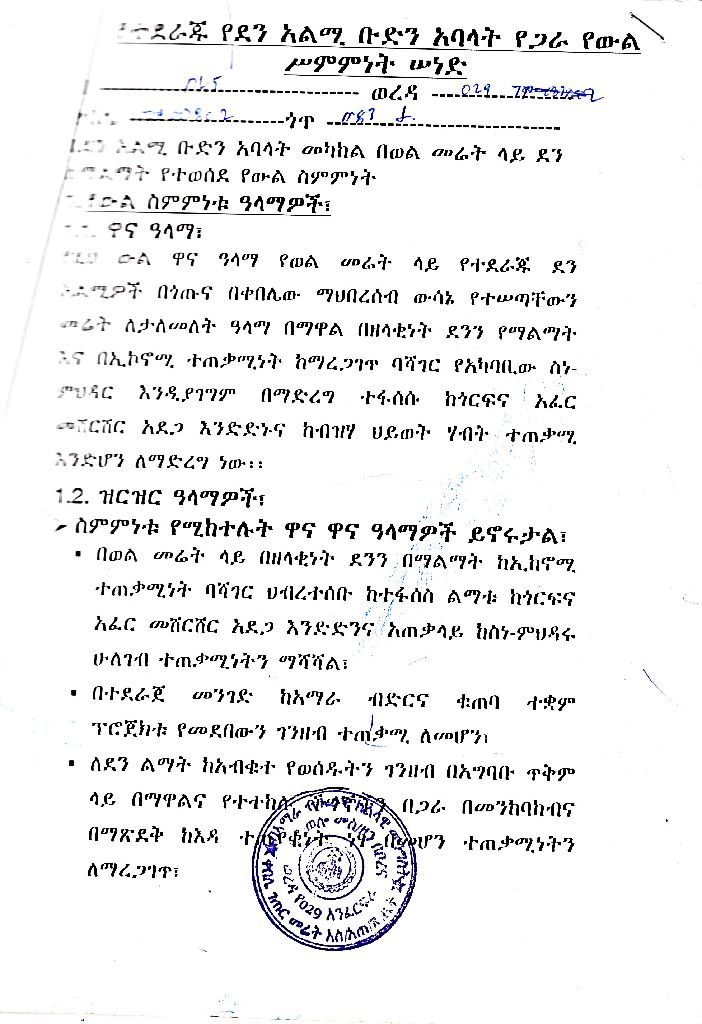 የተደራጁ የደን አልሚ ቡድን አባላት የጋራ የውል
ሥምምነት ሠነድ
ወረዳ 029
ጎጥ
አልሚ ቡድን አባላት መካከል በወል መሬት ላይ ደን
የተወሰደ የውል ስምምነት
የውል ስምምነቱ ዓላማዎች፣
1.1. ዋና ዓላማ፣
የዚህ ውል ዋና ዓላማ የወል መሬት ላይ የተደራጁ ደን
አልሚዎች በጎጡና በቀበሌው ማህበረሰብ ውሳኔ የተሠጣቸውን
መሬት ለታለመለት ዓላማ በማዋል በዘላቂነት ደንን የማልማት
እና በኢኮኖሚ ተጠቃሚነት ከማረጋገጥ ባሻገር የአካባቢው ስነ-
ምህዳር እንዲያገግም በማድረግ ተፋሰሱ ከጎርፍና አፈር
መሸርሸር አደጋ እንድድኑና ከብዝሃ ህይወት ሃብት ተጠቃሚ
እንድሆን ለማድረግ ነው፡፡
1.2. ዝርዝር ዓላማዎች፣
➢ ስምምነቱ የሚከተሉት ዋና ዋና ዓላማዎች ይኖሩታል፣
▪ በወል መሬት ላይ በዘላቂነት ደንን በማልማት ከኢከኖሚ
ተጠቃሚነት ባሻገር ህብረተሰቡ ከተፋሰስ ልማቱ ከጎርፍና
አፈር መሸርሸር አደጋ እንድድንና አጠቃላይ ከስነ-ምህዳሩ
ሁለገብ ተጠቃሚነትን ማሻሻል፣
▪ በተደራጀ መንገድ ከአማራ ብድርና ቁጠባ ተቋም
ፕሮጀክቱ የመደበውን ገንዘብ ተጠቃሚ ለመሆን፣
▪ ለደን ልማት ከአብቁተ የወሰዱትን ገንዘብ በአግባቡ ጥቅም
ላይ በማዋልና የተተከሉ በጋራ በመንከባከብና
በማጽደቅ ከእዳ ነፃ በመሆን ተጠቃሚነትን
ለማረጋገጥ፣
ወረዳ የ029